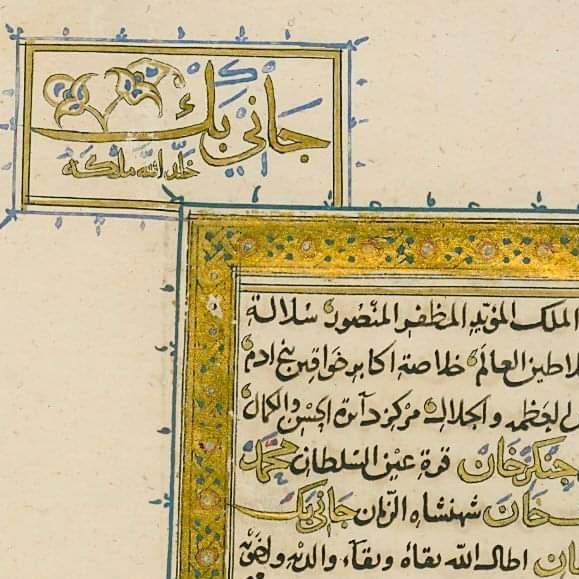 جَاني بَك
خلّد الله ملكه
الملك المؤيد المظفر المنصور سلالة
لاطين العالم خلاصة اكابر خواقين بني ادم
العظمه والجلال مركز دآئرة الحسن والكمال
جنكز خان قرة عين السلطان محمد
خان شهنشاه الزمان جاني بك
خان اطال الله بقاه وبقاء والديه